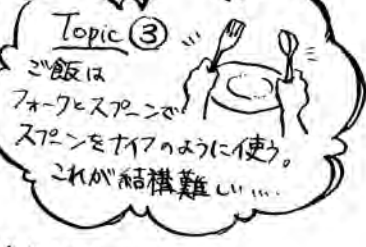 Topic ③
ご飯は
フォークとスプーンで
スプーンをナイフのように使う。
これが結構難しい...